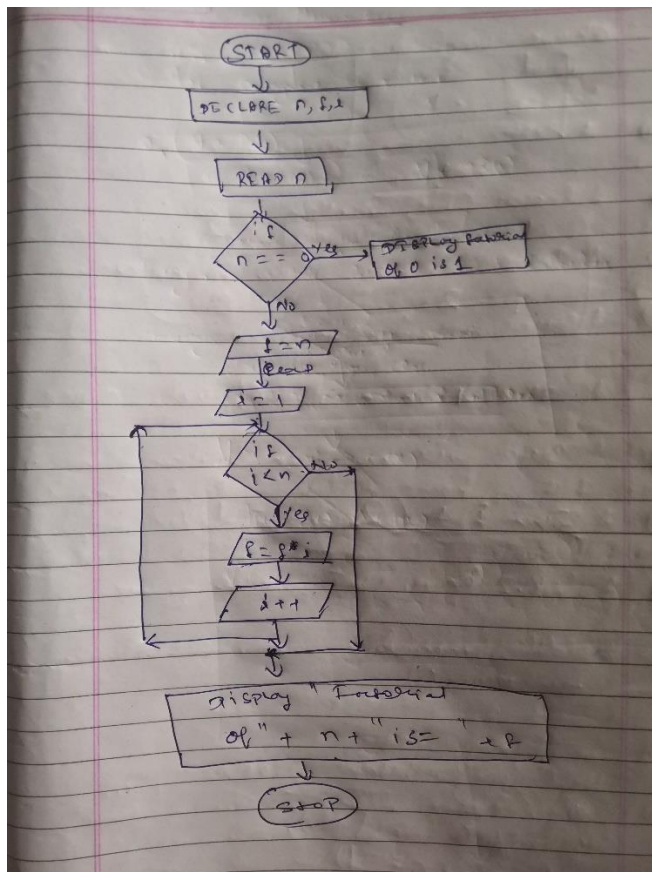 START
DECLARE n, f, i
READ n
if
n == 0
Yes
DISPLAY
of 0 is 1
No
f = n
i = 1
if
i < n
No
Yes
f = f * i
i++
Display " Factorial
of " + n + " is = " + f
STOP